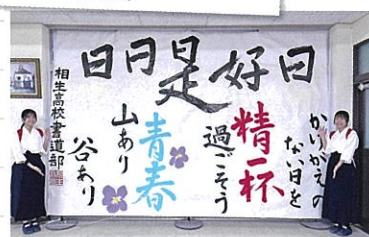 日日是好日
かけがえの
ない日を
精一杯
過ごそう
青春
山あり
谷あり
相生高校書道部